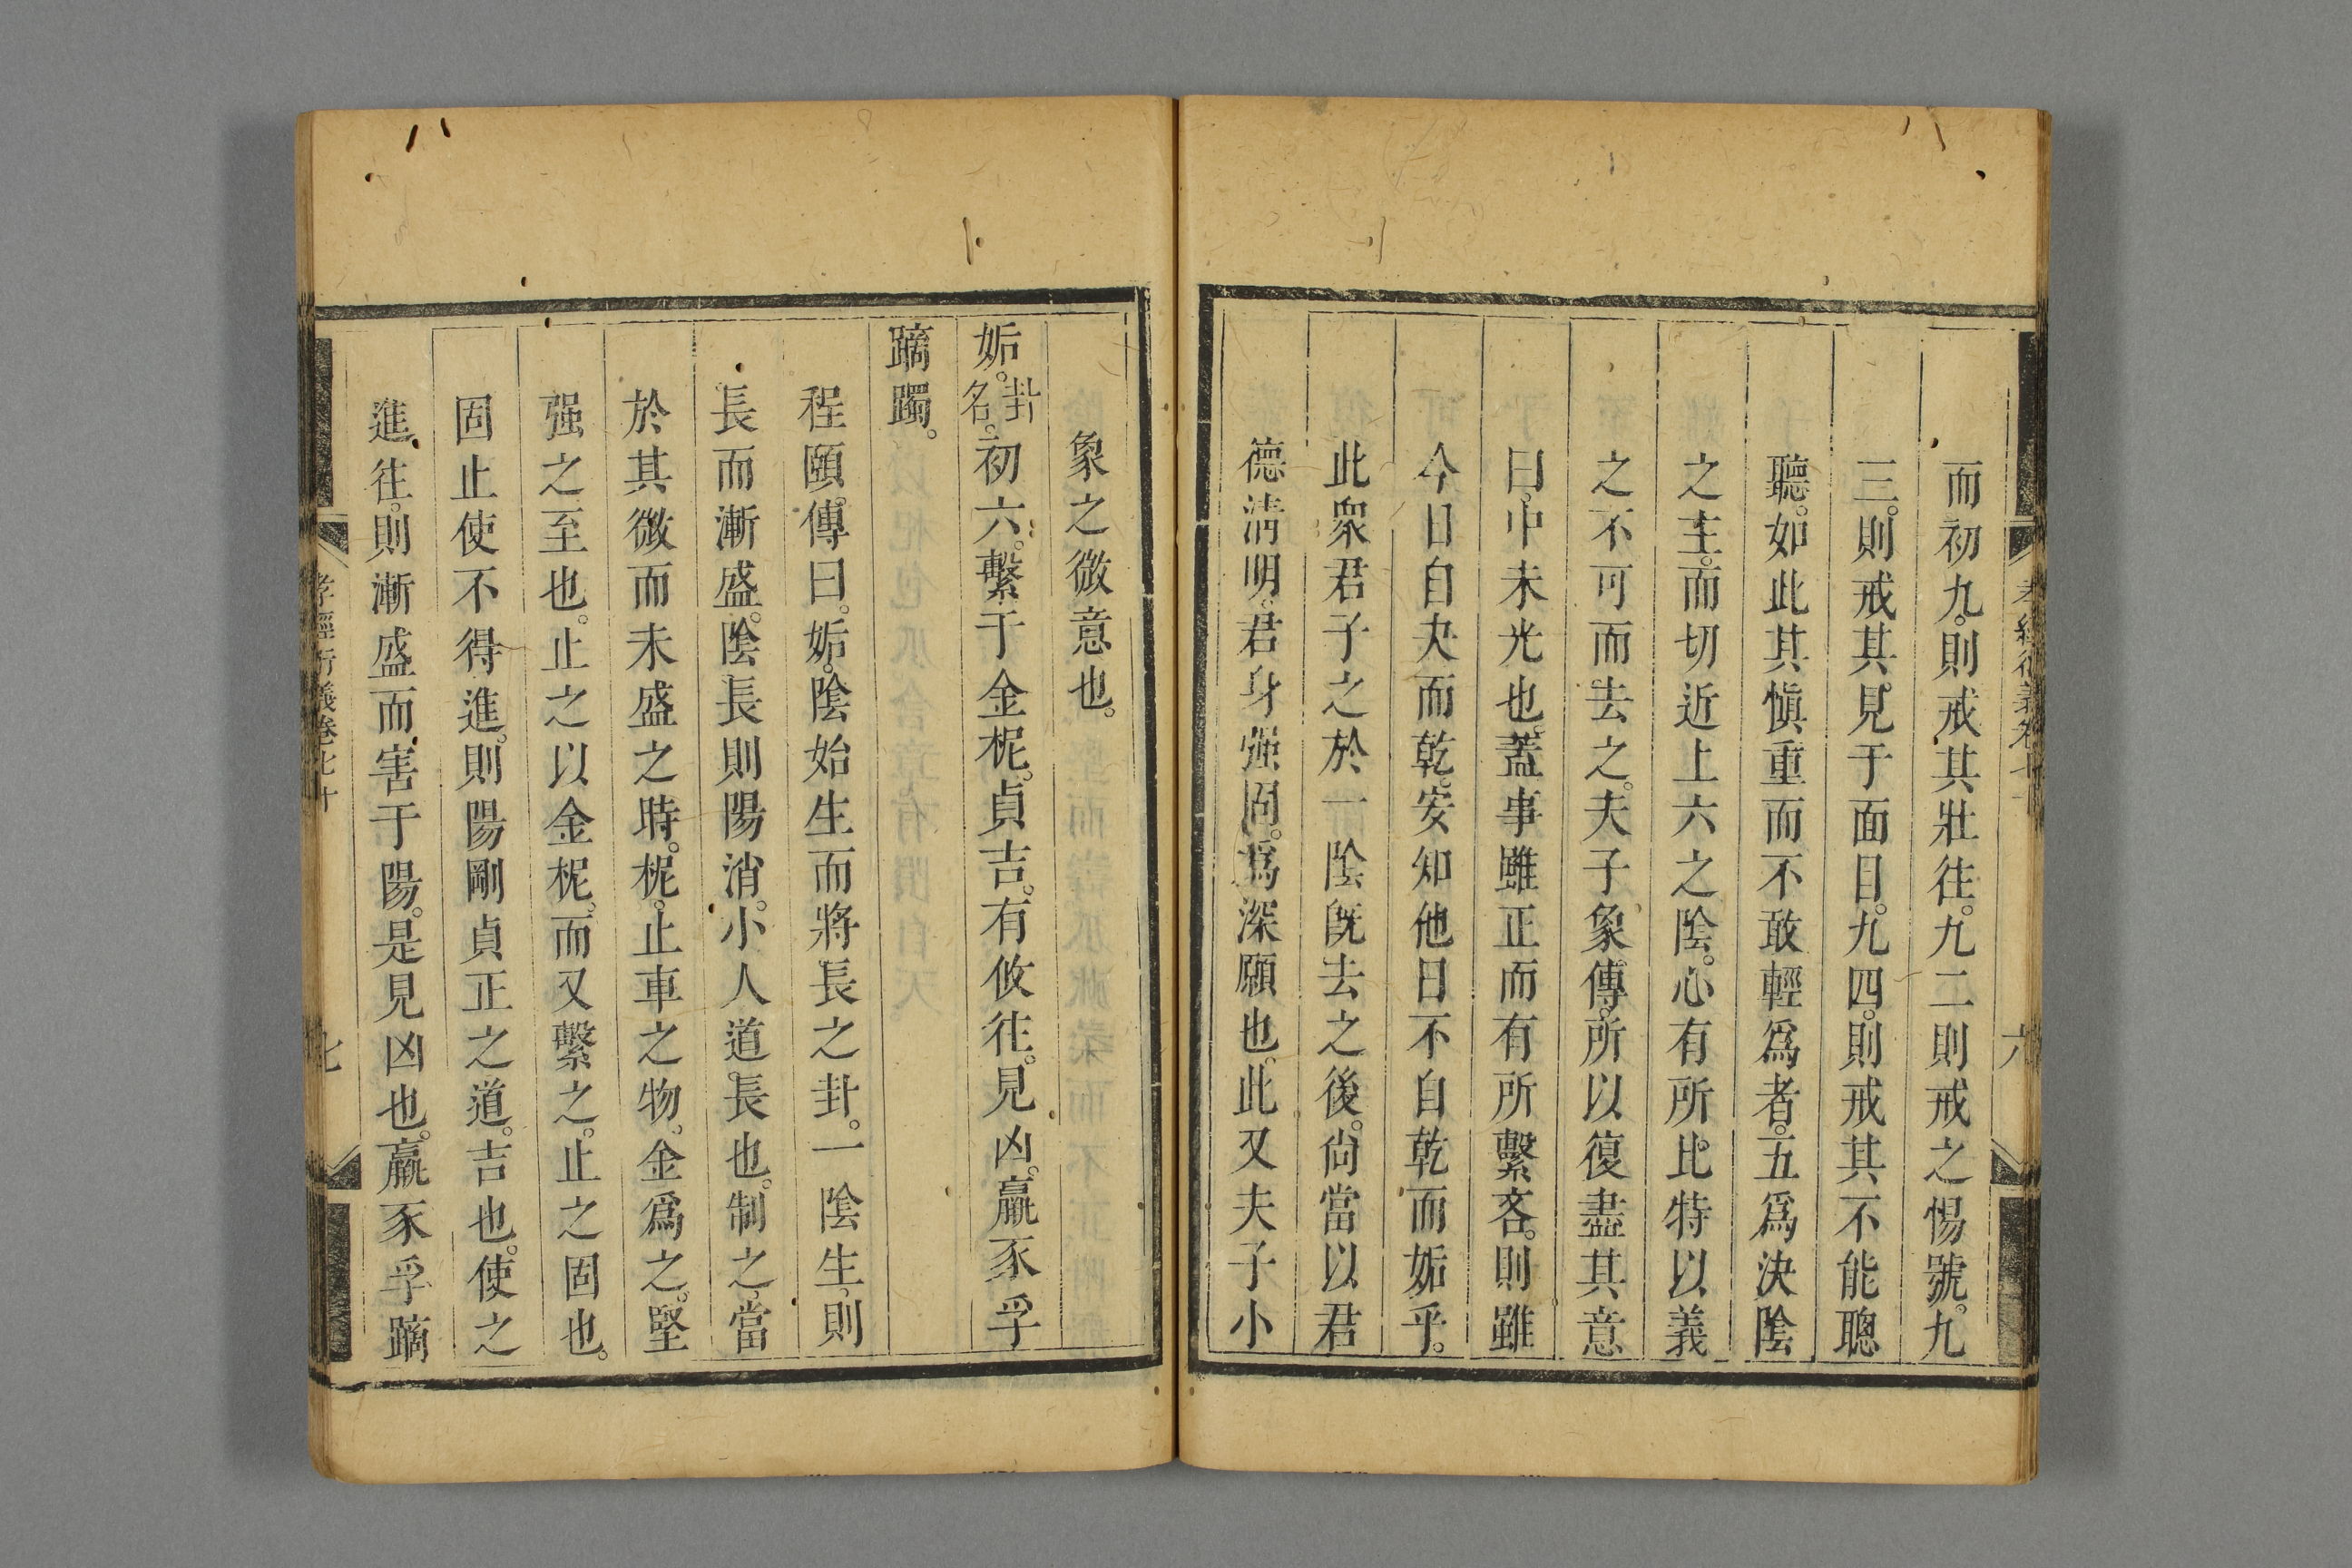 而初九。則戒其壯往。九二則戒之惕號。九
三。則戒其見于面目。九四。則戒其不能聰
聽。如此其慎重而不敢輕爲者。五爲決陰
之主。而切近上六之陰。心有所比。特以義
之不可而去之。夫子象傳。所以復盡其意
曰。中未光也。蓋事雖正而有所繫吝。則雖
今日自夬而乾。安知他日不自乾而姤乎。
此衆君子之於一陰旣去之後。尙當以君
德淸明。君身强固。爲深願也。此又夫子小
象之微意也。
姤。卦名。初六。繫于金柅。貞吉。有攸往。見凶。羸豕孚
蹢躅。
程頤。傳曰。姤。陰始生而將長之卦。一陰生。則
長而漸盛。陰長則陽消。小人道長也。制之。當
於其微而未盛之時。柅。止車之物。金爲之。堅
强之至也。止之以金柅。而又繫之。止之固也。
固止使不得進。則陽剛貞正之道。吉也。使之
進往。則漸盛而害于陽。是見凶也。羸豕孚蹢
孝經衍義卷七十
七
六